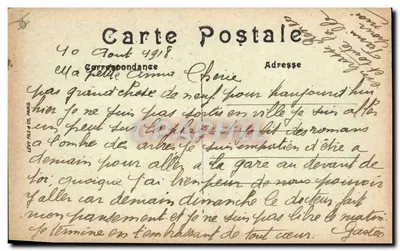 Carte Postale
Correspondance
Adresse
10 Aout 1918
Ma petite Cherie
pas grand chose de neuf pour aujourd'hui
hier je ne suis pas sortis en ville je suis aller
un peu sur la lit des romans
a l'ombre des arbres je suis impatient d'être a
demain pour aller a la gare au devant de
toi, quoique j'ai bien peur de ne pouvoir
y aller car demain dimanche le docteur fait
mon pansement et je ne suis pas libre le matin
je termine en t'embrassant de tout cœur. Gaston
LEVY FILS & CIE, PARIS